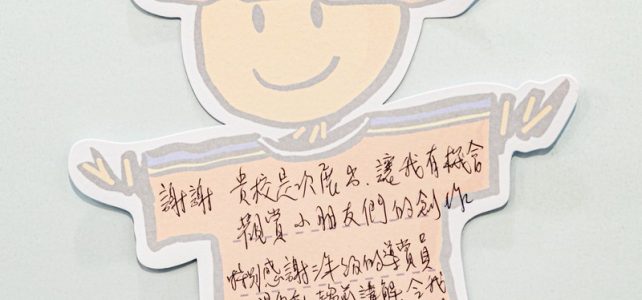 謝謝 貴校是次展出，讓我有機會
觀賞小朋友們的創作
特別感謝三年級的導賞員
講解 令我